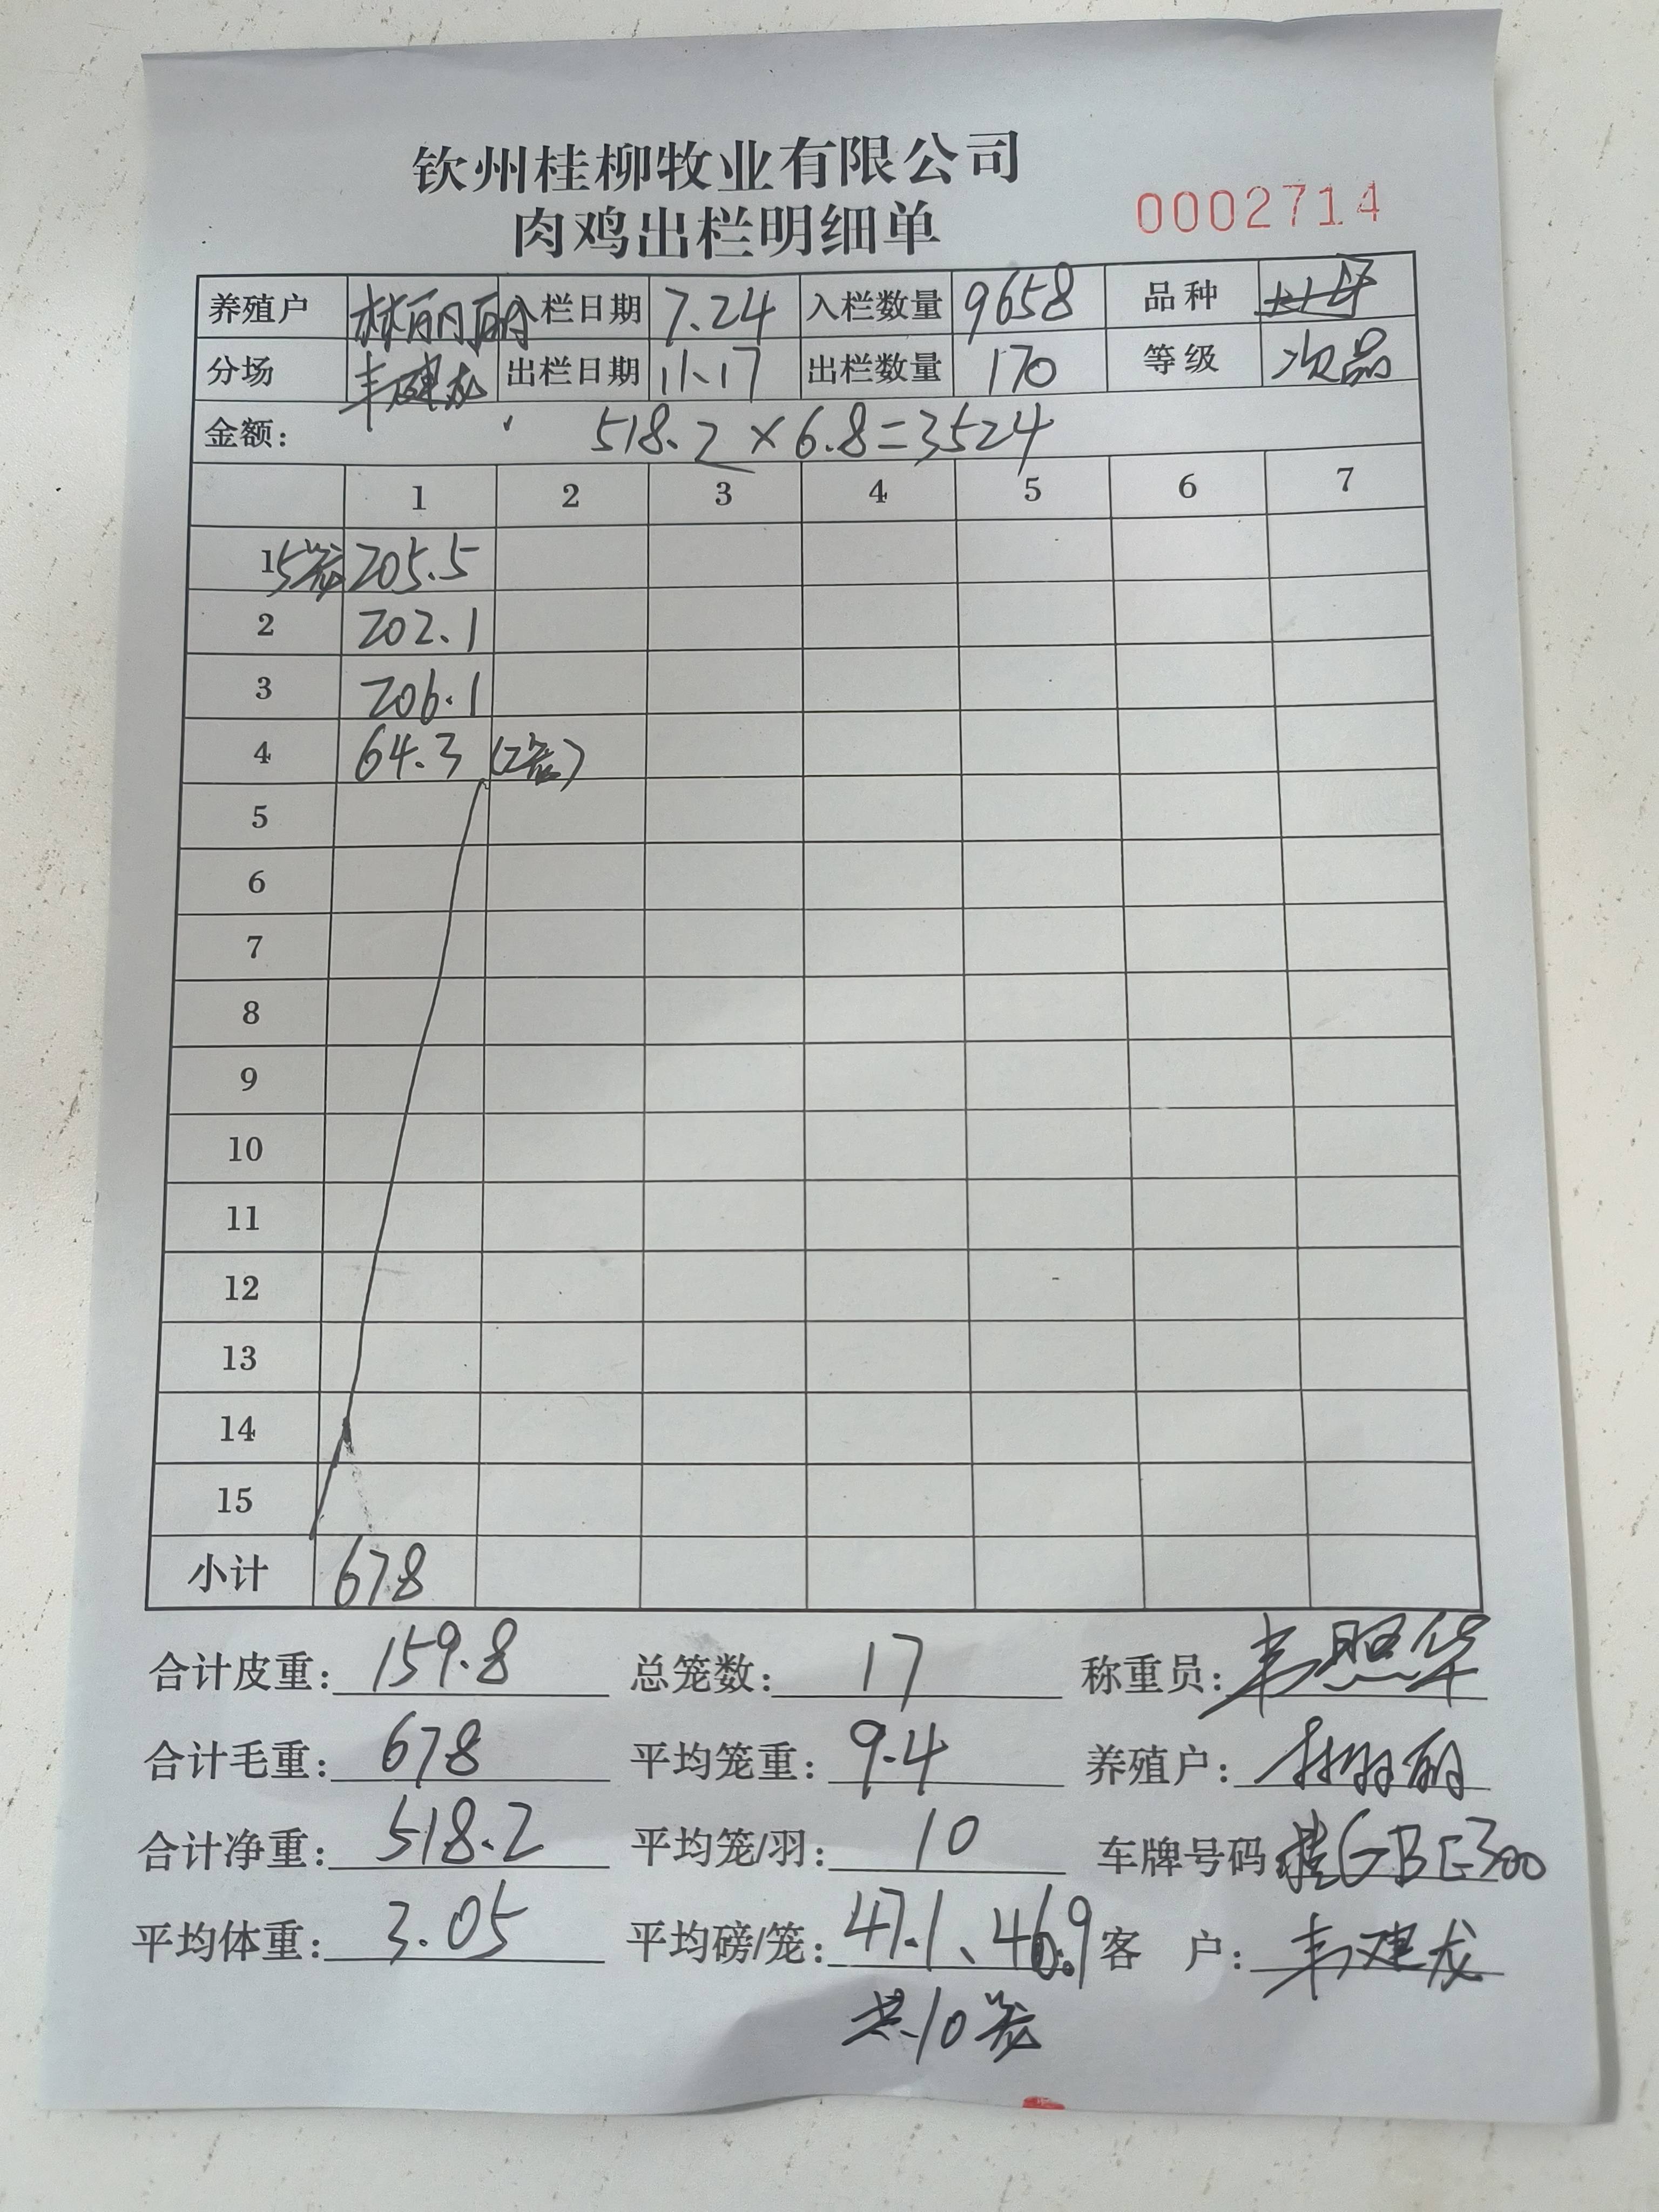 钦州桂柳牧业有限公司
肉鸡出栏明细单
0002714
养殖户 林丽丽 入栏日期 7.24 入栏数量 9658 品种
分场 韦建龙 出栏日期 11.17 出栏数量 170 等级 次品
金额: 518.2×6.8=3524
1 2 3 4 5 6 7
1 5笼 205.5
2 202.1
3 206.1
4 64.3 (2笼)
5
6
7
8
9
10
11
12
13
14
15
小计 678
合计皮重: 159.8 总笼数: 17 称重员: 韦照华
合计毛重: 678 平均笼重: 9.4 养殖户: 林丽丽
合计净重: 518.2 平均笼/羽: 10 车牌号码 桂GBE300
平均体重: 3.05 平均磅/笼: 47.1、46.9 客 户: 韦建龙
共10笼